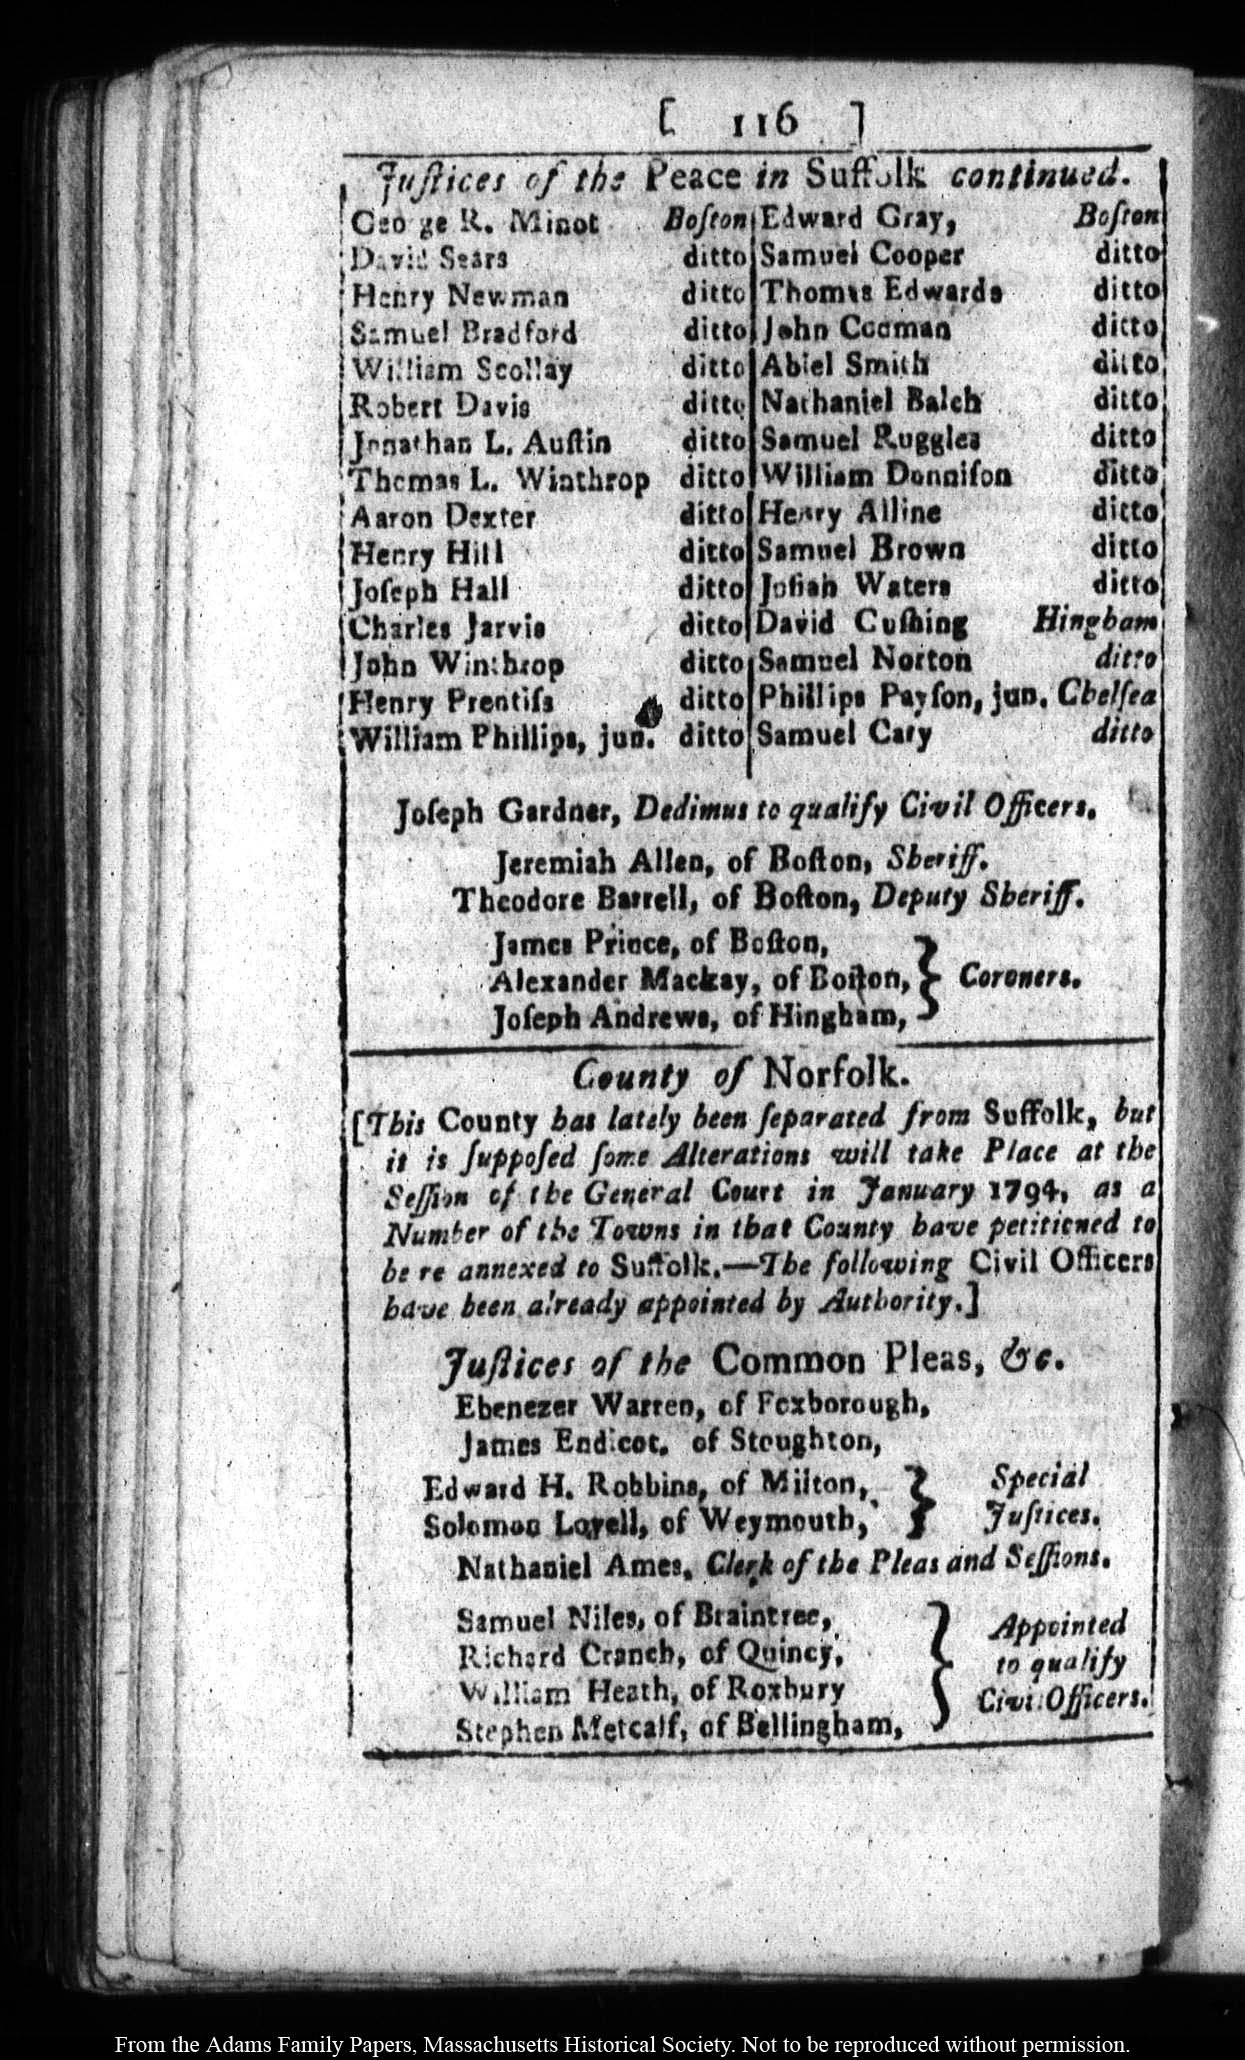 [ 116 ]
Juſtices of the Peace in Suffolk continued.
George R. Minot Boſton
David Sears ditto
Henry Newman ditto
Samuel Bradford ditto
William Scollay ditto
Robert Davis ditto
Jonathan L. Auſtin ditto
Thomas L. Winthrop ditto
Aaron Dexter ditto
Henry Hill ditto
Joſeph Hall ditto
Charles Jarvis ditto
John Winthrop ditto
Henry Prentiſs ditto
William Phillips, jun. ditto
Edward Gray, Boſton
Samuel Cooper ditto
Thomas Edwards ditto
John Codman ditto
Abiel Smith ditto
Nathaniel Balch ditto
Samuel Ruggles ditto
William Donniſon ditto
Henry Alline ditto
Samuel Brown ditto
Joſiah Waters ditto
David Cuſhing Hingham
Samuel Norton ditto
Phillips Payſon, jun. Chelſea
Samuel Cary ditto
Joſeph Gardner, Dedimus to qualify Civil Officers.
Jeremiah Allen, of Boſton, Sheriff.
Theodore Barrell, of Boſton, Deputy Sheriff.
James Prince, of Boſton,
Alexander Mackay, of Boſton, } Coroners.
Joſeph Andrews, of Hingham,
County of Norfolk.
[This County has lately been ſeparated from Suffolk, but
it is ſuppoſed ſome Alterations will take Place at the
Seſſion of the General Court in January 1794, as a
Number of the Towns in that County have petitioned to
be re annexed to Suffolk.—The following Civil Officers
have been already appointed by Authority.]
Juſtices of the Common Pleas, &c.
Ebenezer Warren, of Foxborough,
James Endicot, of Stoughton,
Edward H. Robbins, of Milton, } Special
Solomon Lovell, of Weymouth, Juſtices.
Nathaniel Ames, Clerk of the Pleas and Seſſions.
Samuel Niles, of Braintree, } Appointed
Richard Cranch, of Quincy, to qualify
William Heath, of Roxbury Civil Officers.
Stephen Metcalf, of Bellingham,
From the Adams Family Papers, Massachusetts Historical Society. Not to be reproduced without permission.